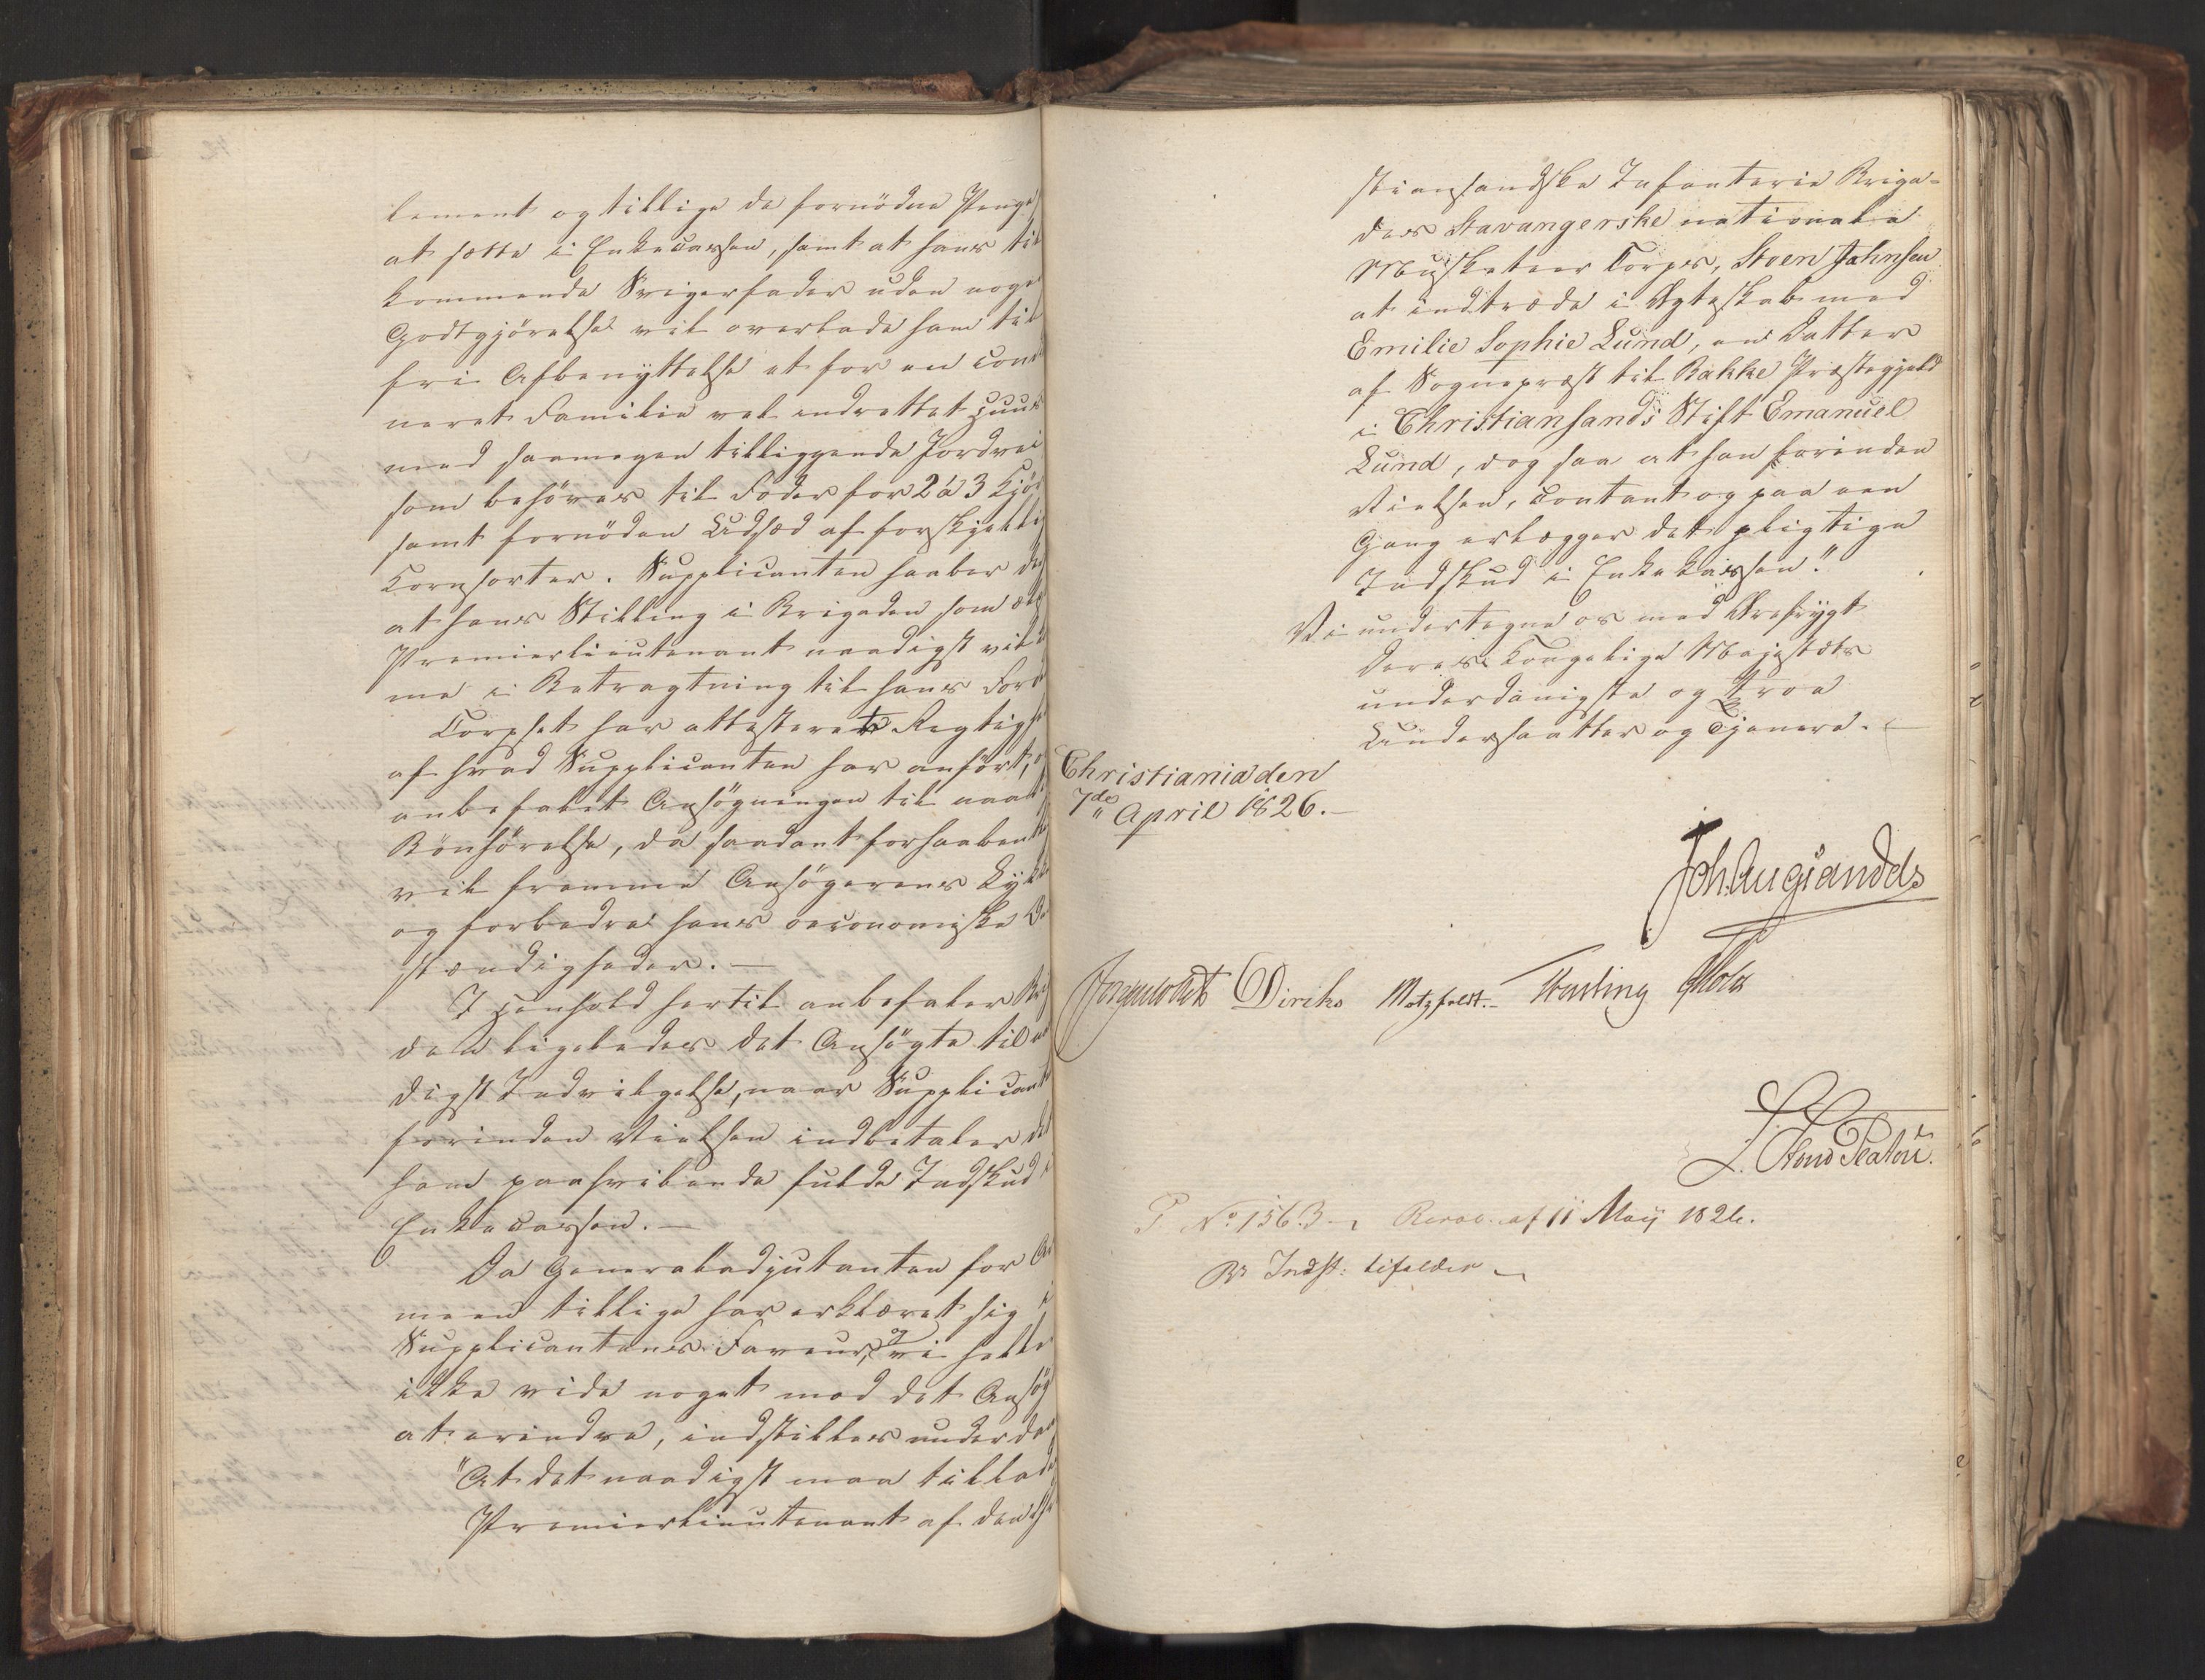 lement og tillige de fornödne Penge
at sætte i Enkecassen, samt at hans til
kommende Svigerfader uden noge
Godtgjörelse vil overlade ham til
fri Afbenyttelse et for en con
neret Familie vel indrettet Huus
med saamegen tilliggende Jordvei
som behöves til Foder for 2 à 3 Kjör
samt fornöden Udsæd af forskjellig
Kornsorter. Supplicanten haaber
at hans Stilling i Brigaden som
Premierlieutenant naadigst vil
me i Betragtning til hans For
Corpset har attesteret Rigtigh
af hvad Supplicanten har anfört,
anbefalet Ansögningen til naad
Bönhörelse, da saadant forhaabent
vil fremme Ansögerens Lykke
og forbedre hans oeconomiske
stændigheder. —
I Henhold hertil anbefaler Brig
den ligeledes det Ansögte til
digst Indvilgelse, naar Supplicant
forinden Vielsen indbetaler det
ham paahvilende fulde Indskud i
Enkecassen. —
Da Generaladjutanten for
meen tillige har erklæret sig i
Supplicantens Faveur, og vi heller
ikke vide noget mod det Ansög
at erindre, indstilles underda
"At det naadigst maa tillade
Premierlieutenant af den
stiansandske Infanterie Briga=
des Stavangerske nationale
Musketeer Corps, Stoen Johnsen
at indtræde i Ægteskab med
Emilie Sophie Lund, en Datter
af Sognepræst til Bakke Præstegjeld
i Christiansands Stift Emanuel
Lund, dog saa at han forinden
Vielsen, contant og paa een
Gang erlægger det pligtige
Indskud i Enkekassen."
Vi undertegne os med Ærefrygt
Deres Kongelige Majestæts
underdanigste og troe
Undersaatter og Tjenere. —
Christiania den
7de April 1826. —
Joh. Aug Sandels
Diriks Motzfeldt. — Fasting Holst
L. Stoud Platou.
P. No 1563 Resol. af 11 Maij 1826.
Br Indst: bifaldes